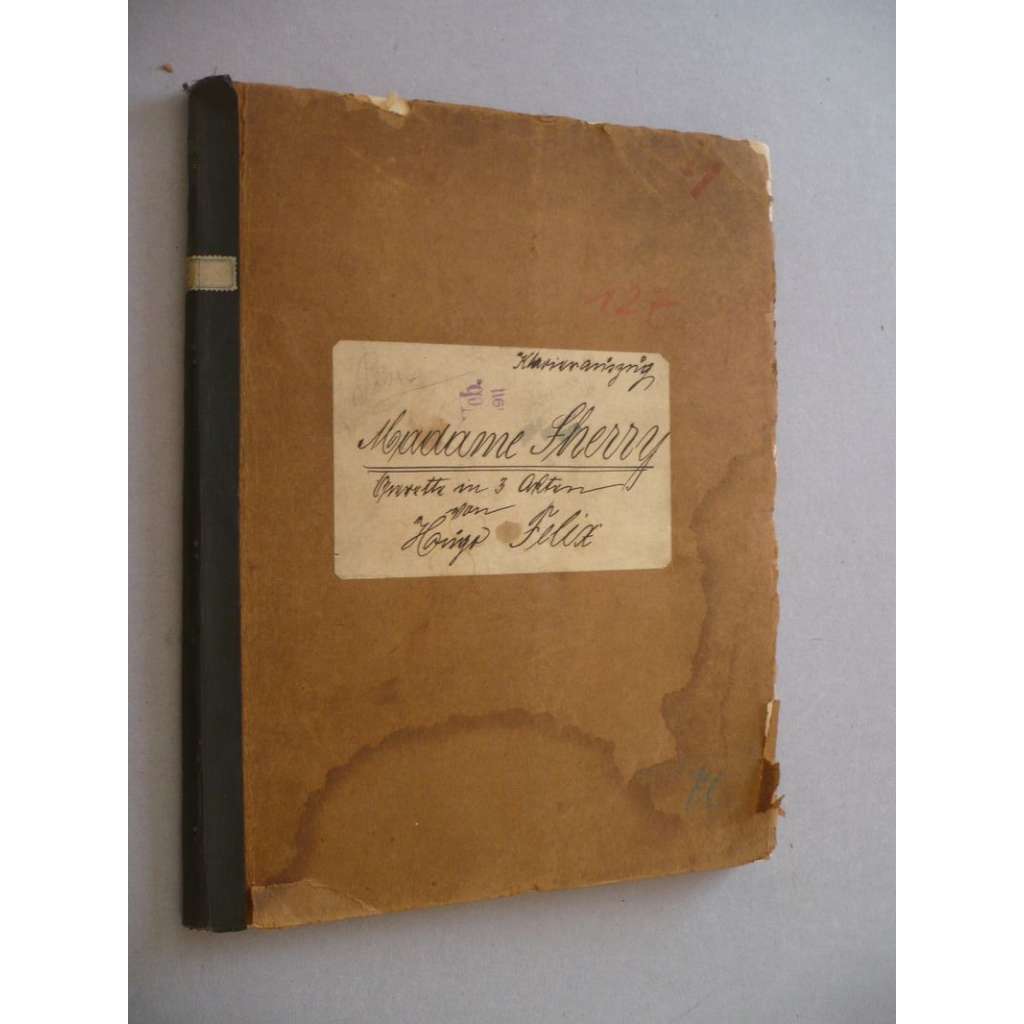 Klavierauszug
Madame Sherry
Operette in 3 Akten
von
Hugo Felix
Feb.
1911
127